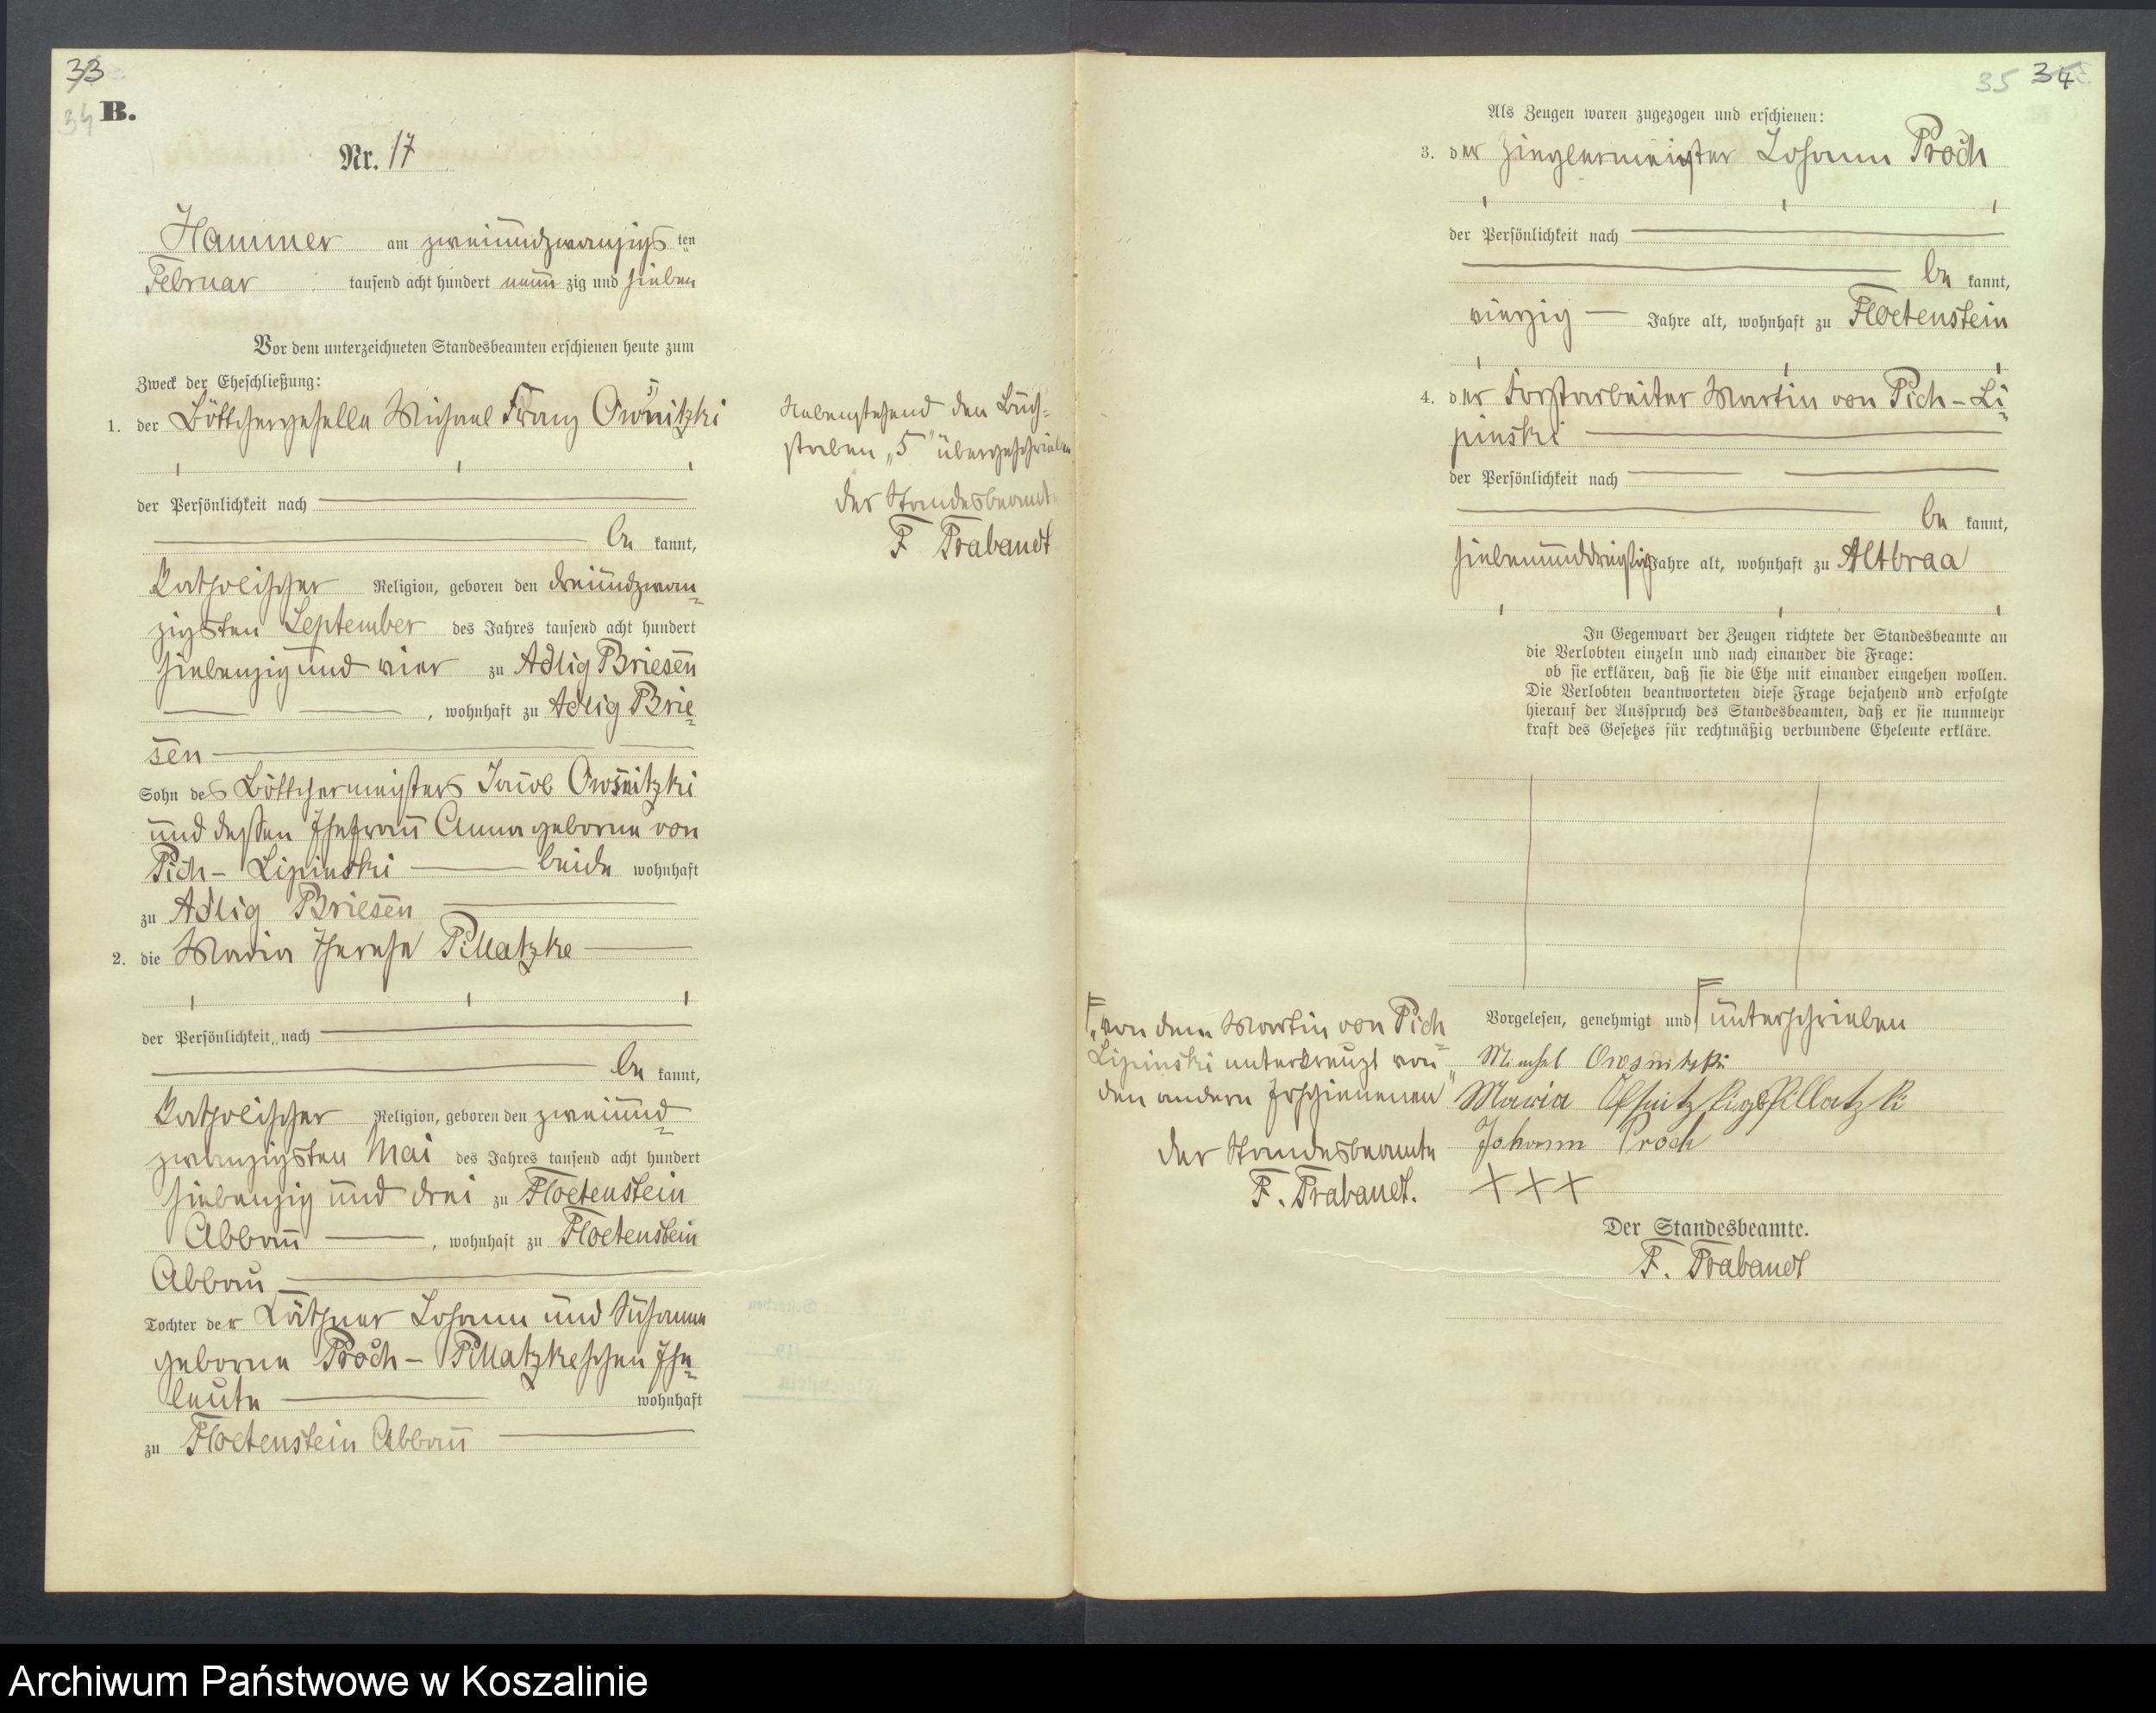 33
34
B.
Nr. 17
Hammer am zweiundzwanzigs ten
Februar tausend acht hundert neun zig und sieben
Vor dem unterzeichneten Standesbeamten erschienen heute zum
Zweck der Eheschließung:
1. der Böttchergeselle Michael Franz Owsnitzki
der Persönlichkeit nach
be kannt,
katholischer Religion, geboren den dreiundzwan=
zigsten September des Jahres tausend acht hundert
siebenzig und vier zu Adlig Briesen
, wohnhaft zu Adlig Brie=
sen
Sohn des Böttchermeisters Jacob Owsnitzki
und dessen Ehefrau Anna geborne von
Pich- Lipinski beide wohnhaft
zu Adlig Briesen
2. die Maria Therese Pillatzke
der Persönlichkeit nach
be kannt,
katholischer Religion, geboren den zweiund=
zwanzigsten Mai des Jahres tausend acht hundert
siebenzig und drei zu Floetenstein
Abbau , wohnhaft zu Floetenstein
Abbau
Tochter der Käthner Johann und Susanna
geborne Proch- Pillatzkeschen Ehe=
leute wohnhaft
zu Floetenstein Abbau
Nebenstehend den Buch=
staben „s" übergeschrieben
Der Standesbeamte
F Trabandt
35 34
Als Zeugen waren zugezogen und erschienen:
3. der Zieglermeister Johann Proch
der Persönlichkeit nach
be kannt,
vierzig Jahre alt, wohnhaft zu Floetenstein
4. der Forstarbeiter Martin von Pich-Li=
pinski
der Persönlichkeit nach
be kannt,
siebenunddreißig Jahre alt, wohnhaft zu Altbraa
In Gegenwart der Zeugen richtete der Standesbeamte an
die Verlobten einzeln und nach einander die Frage:
ob sie erklären, daß sie die Ehe mit einander eingehen wollen.
Die Verlobten beantworteten diese Frage bejahend und erfolgte
hierauf der Ausspruch des Standesbeamten, daß er sie nunmehr
kraft des Gesetzes für rechtmäßig verbundene Eheleute erkläre.
Vorgelesen, genehmigt und unterschrieben
„von dem Martin von Pich=
Lipinski unterkreuzt von
den andern Erschienenen"
Der Standesbeamte
F. Trabandt.
Michael Owsnitzki
Maria Ofsnitzki geb Pillatzki
Johann Proch
XXX
Der Standesbeamte.
F. Trabandt
Archiwum Państwowe w Koszalinie